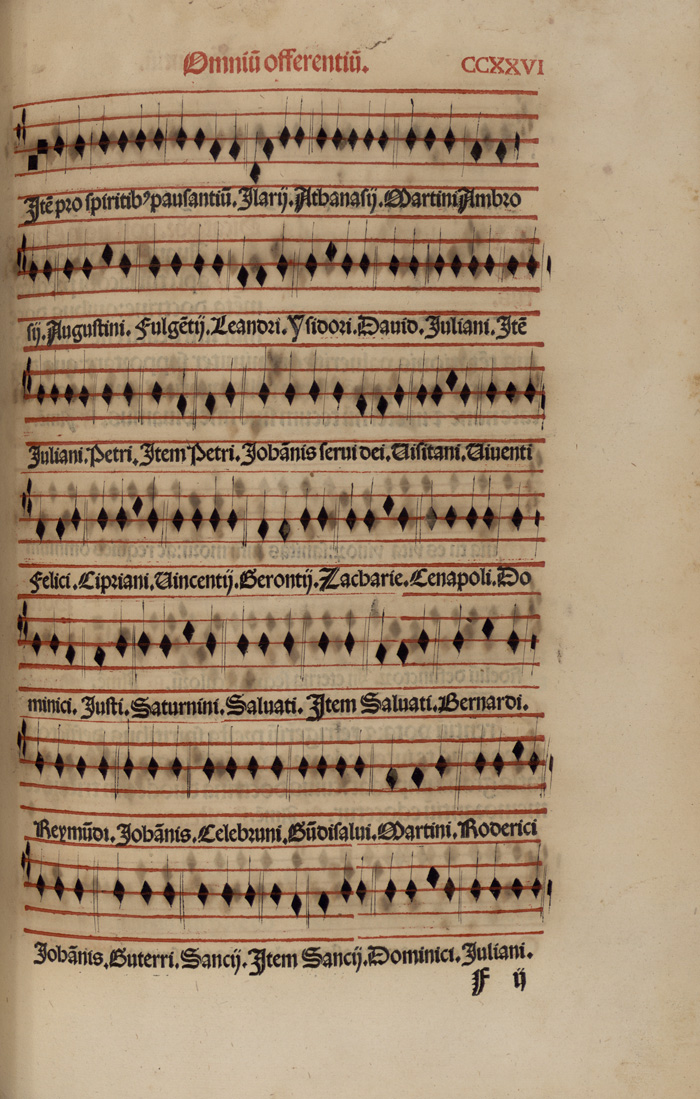 Omniū offerentiū. CCXXVI
Itē pro spiritibꝰ pausantiū. Ilarij. Athanasij. Martini Ambro
sij. Augustini. Fulgētij. Leandri. Ysidori. Dauid. Juliani. Itē
Juliani. Petri. Item Petri. Johānis serui dei. Uisitani. Uiuenti
Felici. Cipriani. Uincentij. Gerontij. Zacharie. Cenapoli. Do
minici. Justi. Saturnini. Saluati. Item Saluati. Bernardi.
Reymūdi. Johānis. Celebruni. Gūdisalui. Martini. Roderici
Johānis. Guterri. Sancij. Item Sancij. Dominici. Juliani.
F ij